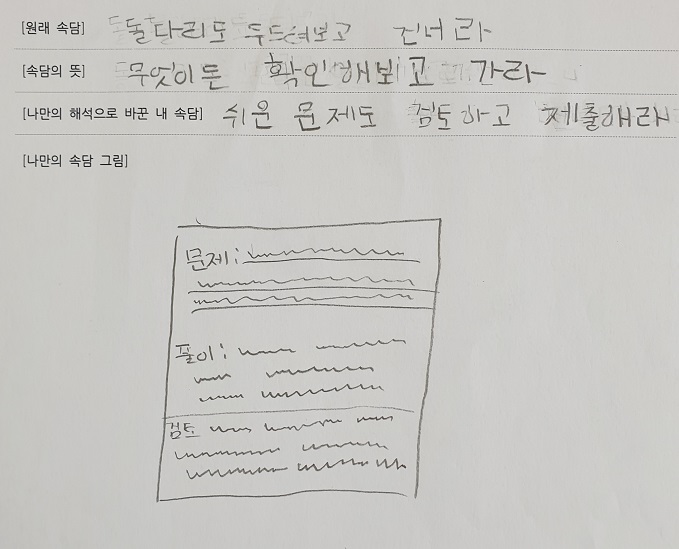 [원래 속담] 돌다리도 두드려보고 건너라
[속담의 뜻] 무엇이든 확인해보고 가라
[나만의 해석으로 바꾼 내 속담] 쉬운 문제도 검토하고 제출해라
[나만의 속담 그림]
문제:
풀이:
검토